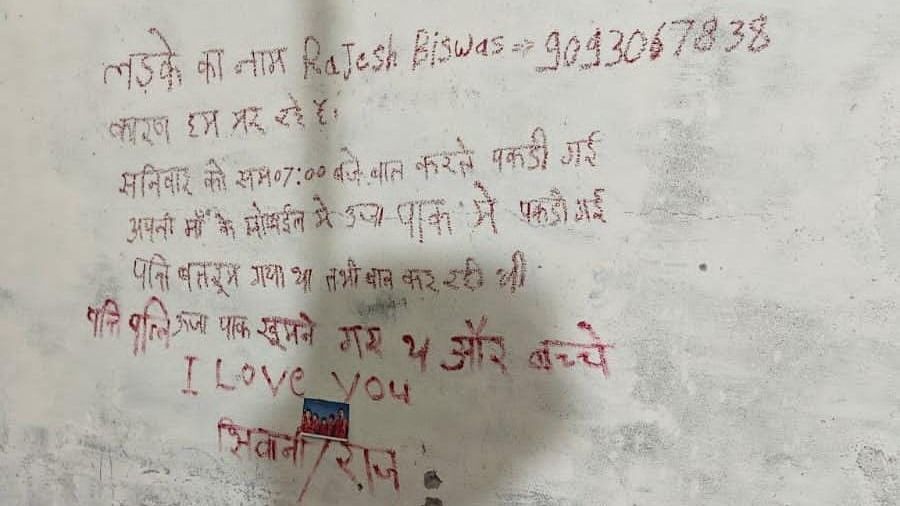 लड़के का नाम RaJesh Biswas ⇒ 9093067838
कारण हम मर रहे है।
सनिवार को सम07:00 बजे बात करते पकडी गई
अपनी माँ के मोबाईल मे उजा पाक मे पकडी गई
पति बतरूम गया था तभी बात कर रही थी
पति पत्नि उजा पाक खूमने गए थे और बच्चे
I Love you
शिवानी/राज